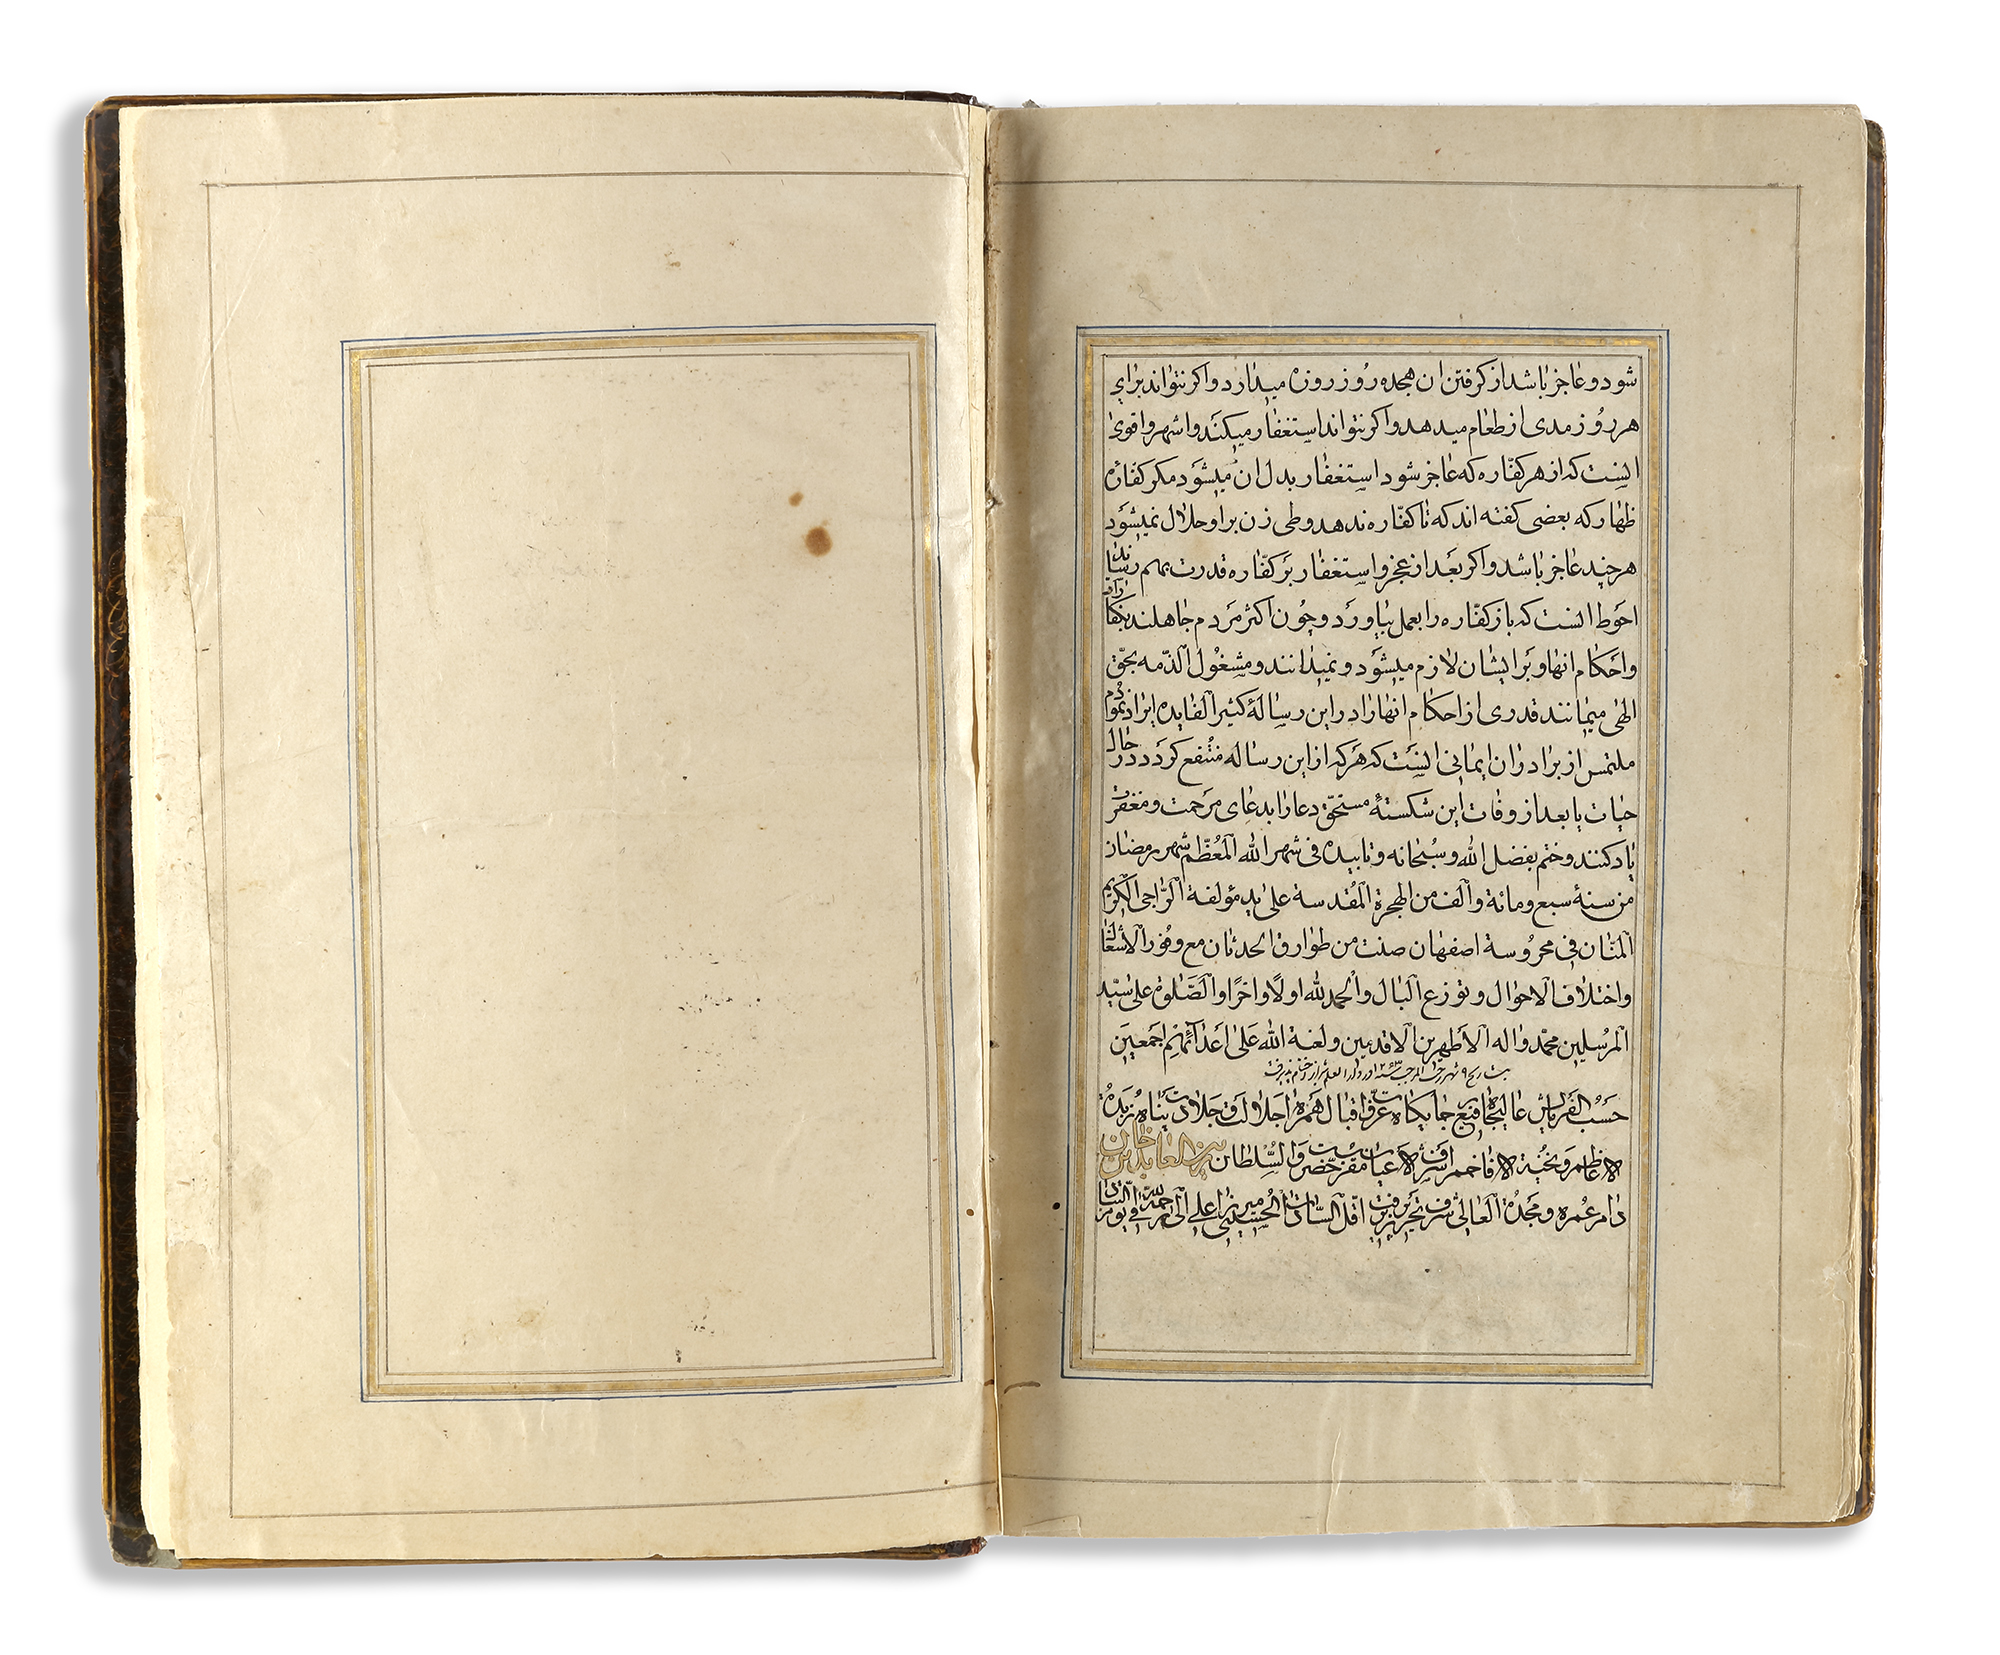 شود و عاجز باشد از گرفتن ان هجده روز روزه میدارد و اکر نتواند برای
هر روز مدی از طعام میدهد و اکر نتواند استغفار میکند و اشهر و اقوی
انست که از هر کفاره که عاجز شود استغفار بدل ان میشود مکر کفاره
ظهار که بعضی کفته اند که تا کفاره ندهد وطی زن بر او حلال نمیشود
هر چند عاجز باشد و اکر بعد از عجز و استغفار بر کفاره قدرت بهم رساند
احوط انست که باز کفاره را بعمل بیاورد و چون اکثر مردم جاهلند بکفارات
و احکام انها و بر ایشان لازم میشود و نمیدانند و مشغول الذمه بحق
الهی میمانند قدری از احکام انها را در این رسالهٔ کثیر الفایده ایراد نمودم
ملتمس از برادران ایمانی انست که هر که از این رساله منتفع کردد در حال
حیات یا بعد از وفات این شکستهٔ مستحق دعا را بدعای مرحمت و مغفرت
یاد کنند و ختم بفضل الله و سبحانه و تاییده فی شهر الله المعظم شهر رمضان
من سنة سبع و مائة و الف من الهجرة المقدسة علی ید مؤلفة الراجی الکریم
المنان فی محروسة اصفهان صنت من طوارق الحدثان مع وفور الاشغال
و اختلاف الاحوال و توزع البال و الحمد لله اولا و اخرا و الصلوة علی سید
المرسلین محمد و اله الاطهرین الاقدمین و لعنة الله علی اعدائهم اجمعین
بتاریخ ۹ شهر رجب المرجب در دار العلم شیراز اختتام پذیرفت
حسب الفرمایش عالیجاه رفیع جایکاه عزت و اقبال همراه اجلالت و جلادت پناه زبدة
الاعاظم و نخبة الافاخم اشرف الاعیان مقرب حضرت السلطان میرزا زین العابدین خان
دام عمره و مجده العالی شرف تحریر یافت اقل السادات میرزا علی الحسینی فی یوم